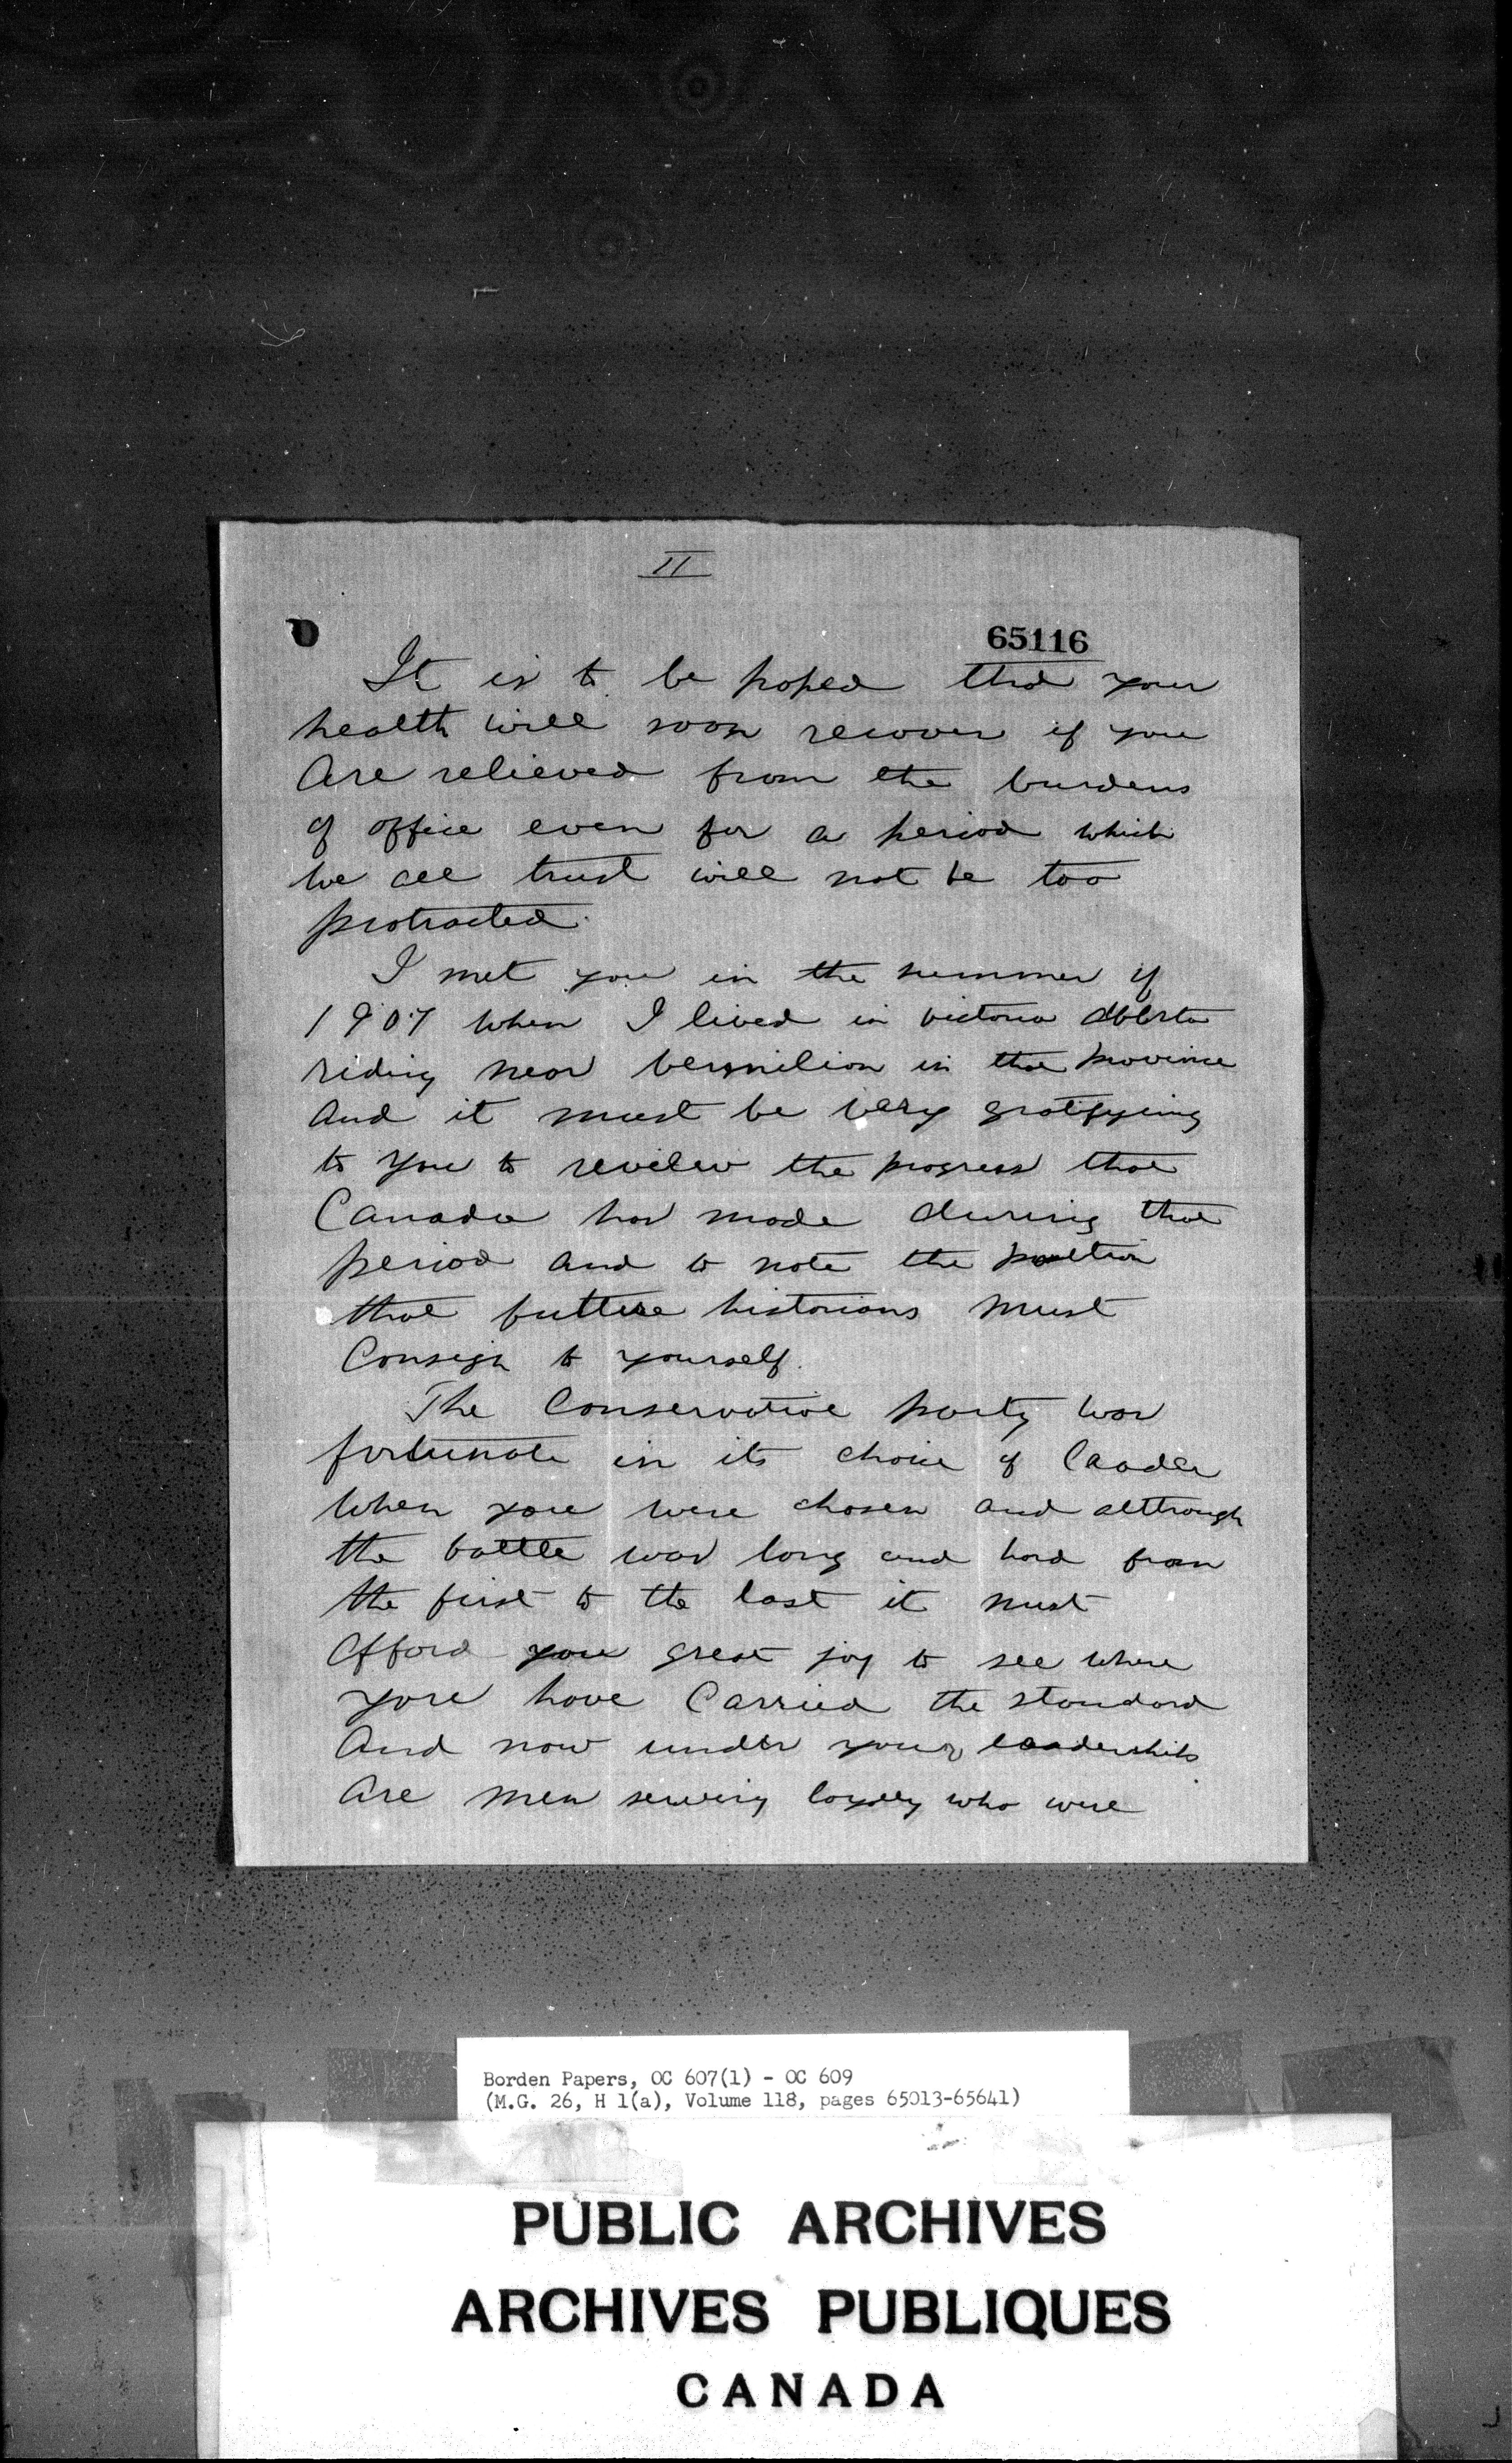 II
65116
It is to be hoped that your
health will soon recover if you
Are relieved from the burdens
of office even for a period which
we all trust will not be too
protracted.
I met you in the summer of
1907 when I lived in Victoria Alberta
riding near Vermilion in that province
and it must be very gratifying
to you to review the progress that
Canada has made during that
period and to note the position
that future historians must
Consign to yourself.
The Conservative party was
fortunate in its choice of leader
when you were chosen and although
the battle was long and hard from
the first to the last it must
Afford you great joy to see where
you have Carried the standard
And now under your leadership
Are men serving loyally who were
Borden Papers, OC 607(1) - OC 609
(M.G. 26, H 1(a), Volume 118, pages 65013-65641)
PUBLIC ARCHIVES
ARCHIVES PUBLIQUES
CANADA